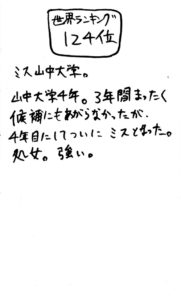 世界ランキング
124位
ミス山中大学。
山中大学4年。3年間まったく
候補にもあがらなかったが、
4年目にしてついにミスとなった。
処女。強い。